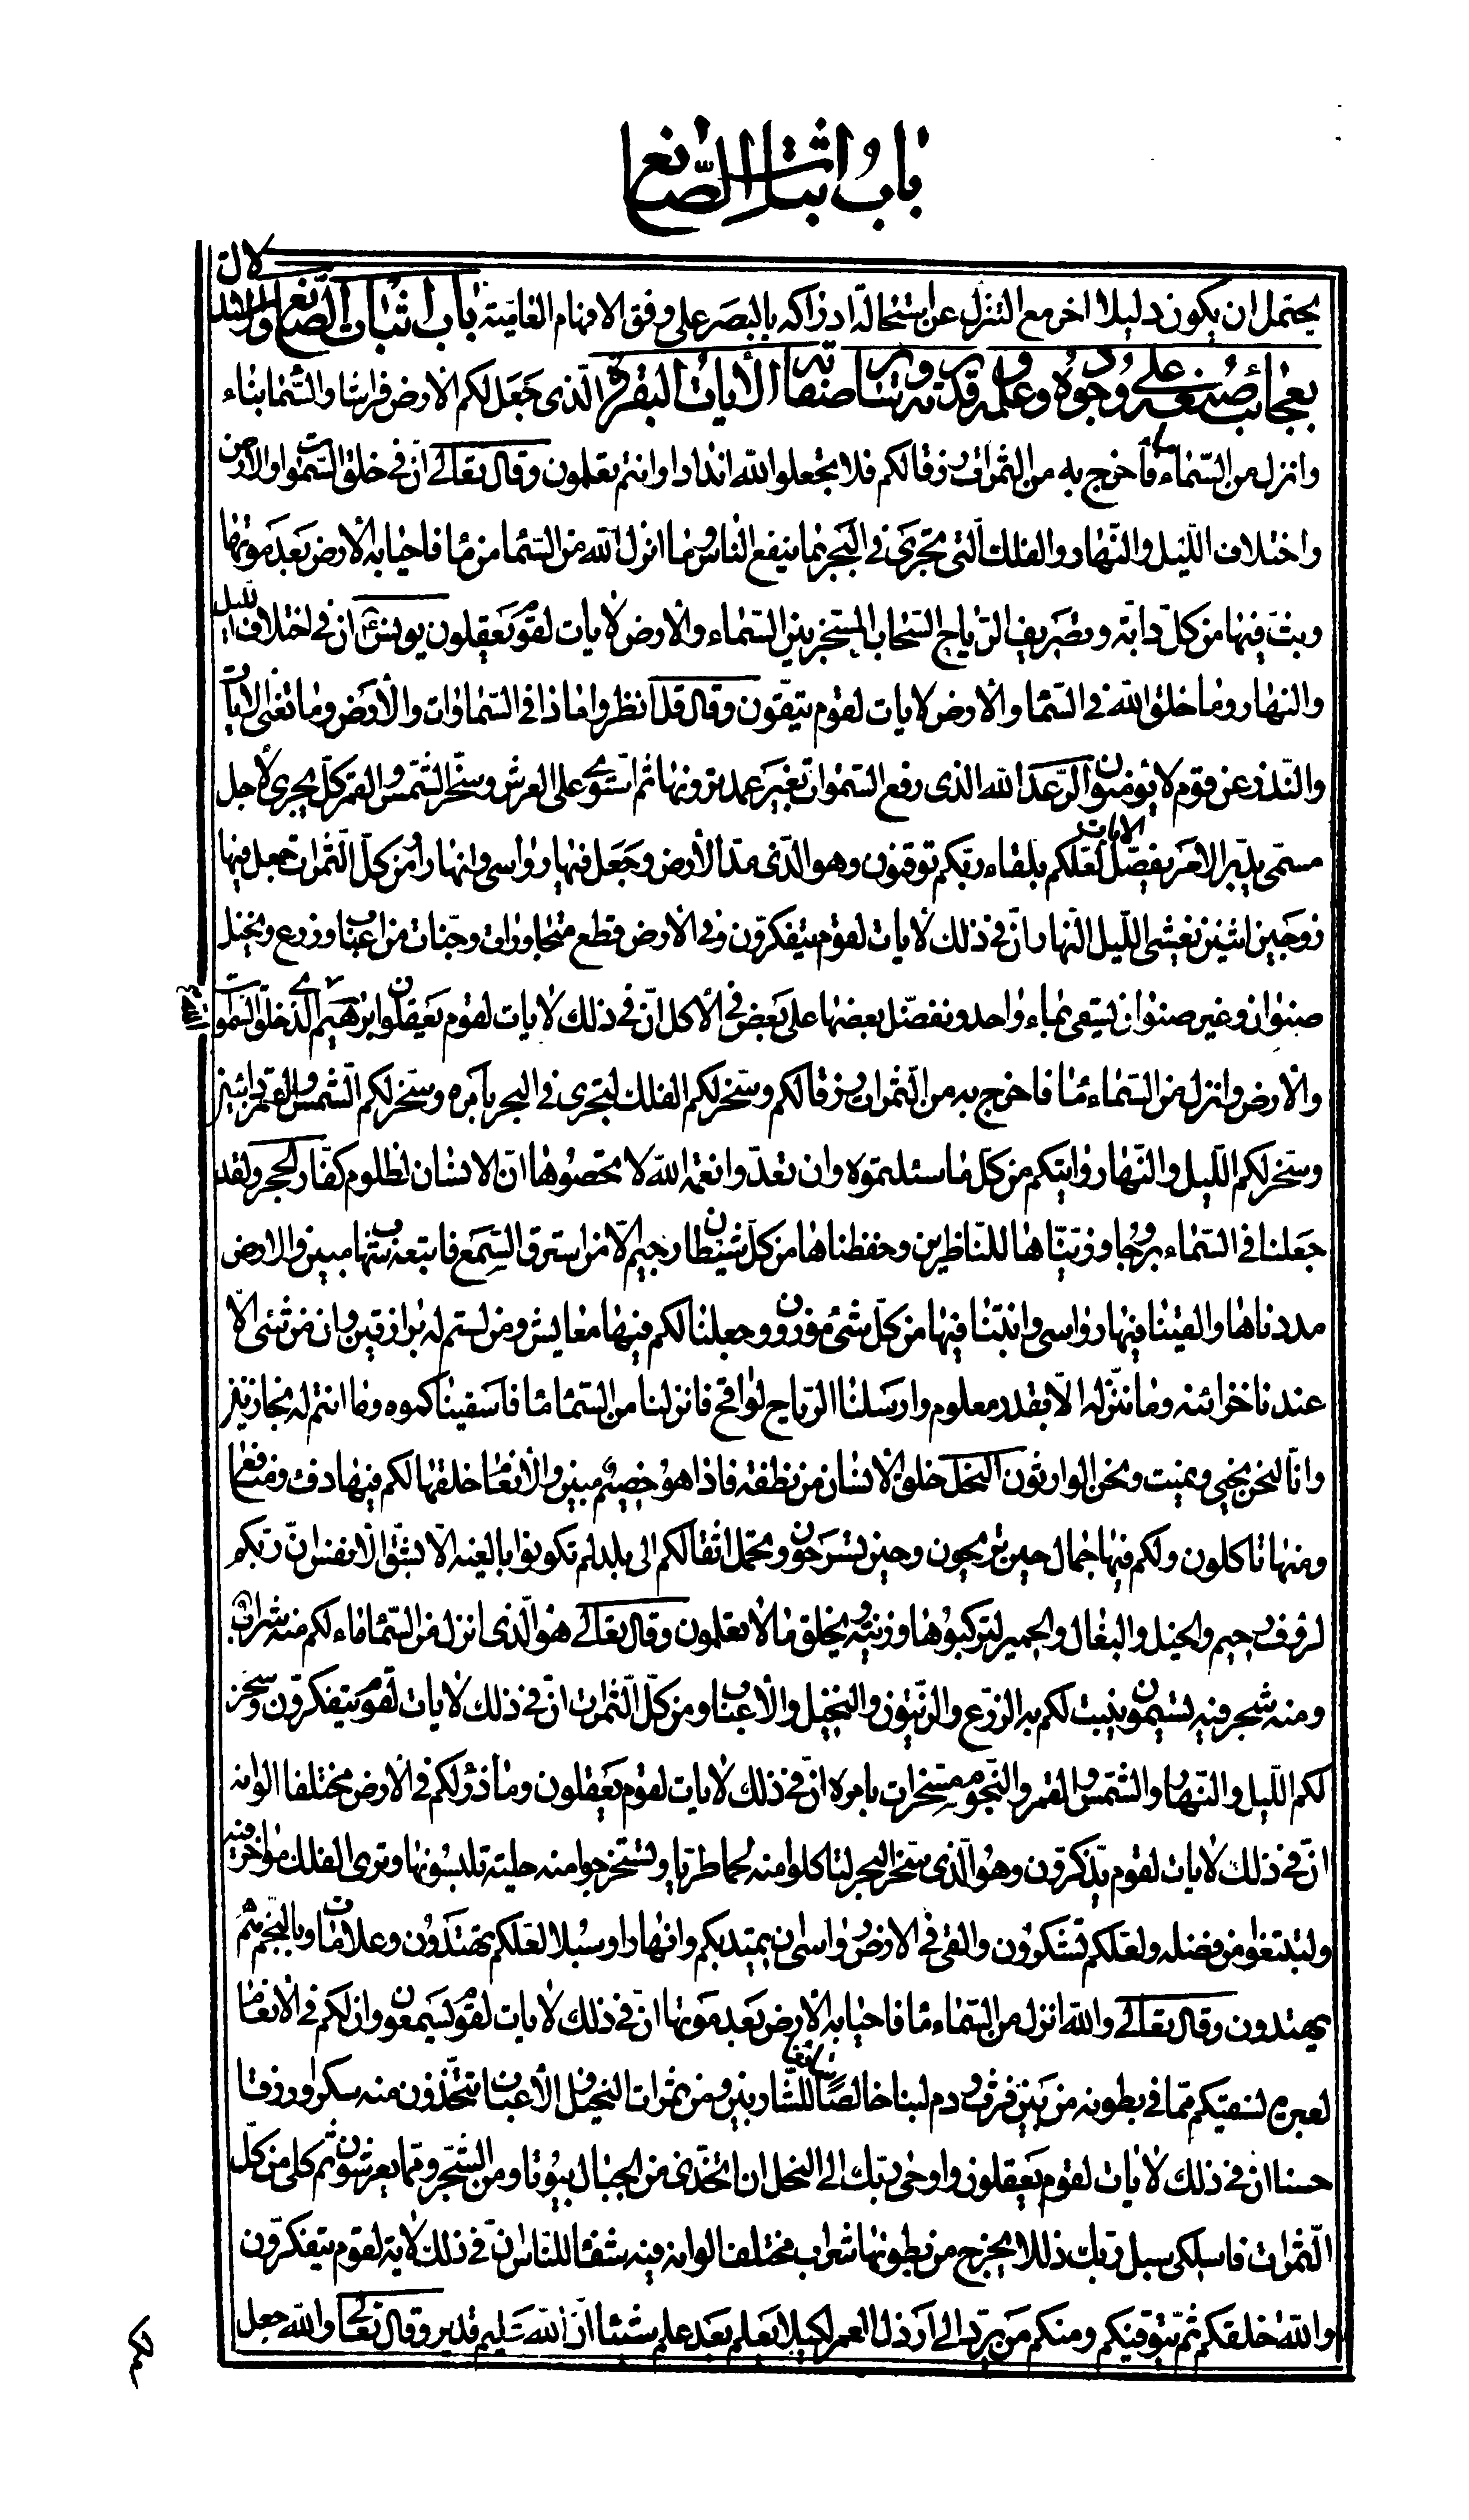 باب اثبات الصّانع
يحتمل ان يكون دليلا اخر مع التنزل عن استحالة ادراكه بالبصر على وفق الافهام العامّية باب اثبات الصّانع والاستدلال
بعجائب صنعه على وجوده وعلمه وقدرته وسائر صفاته الأيات البقرة الّذى جعل لكم الأرض فراشا والسّما بناء
وانزل من السّماء ماء فاخرج به من الثمرات رزقا لكم فلا تجعلوا لله اندادا وانتم تعلمون وقال تعالى انّ فى خلق السّموات والأرض
واختلاف اللّيل والنّهار والفلك الّتى تجرى فى البحر بما ينفع النّاس وما انزل الله من السّما من ما فاحيا به الأرض بعد موتها
وبثّ فيها من كلّ دابّة وتصريف الرّياح والسّحاب المسخّر بين السّماء والأرض لأيات لقوم يعقلون يونس ان فى اختلاف اللّيل
والنهار وما خلق الله فى السّما والأرض لايات لقوم يتّقون وقال قل انظروا ماذا فى السّماوات والأرض وما تغنى الايات
والنّذر عن قوم لا يؤمنون الرّعد الله الذى رفع السّموات بغير عمد ترونها ثم استوى على العرش وسخّر الشّمس والقمر كلّ يجرى لأجل
مسمّى يدبّر الامر يفصّل الايات لعلّكم بلقاء ربّكم توقنون وهو الّذى مدّ الأرض وجعل فيها رواسى وانهارا ومن كلّ الثّمرات جعل فيها
زوجين اثنين يغشى اللّيل النّهار انّ فى ذلك لأيات لقوم يتفكّرون وفى الأرض قطع متجاورات وجنّات من اعناب وزرع ونخيل
صنوان وغير صنوان يسقى بماء واحد ونفضّل بعضها على بعض فى الأكل انّ فى ذلك لايات لقوم يعقلون ابرهيم الّذى خلق السّموات
والأرض وانزل من السّماء ما فاخرج به من الثّمرات رزقا لكم وسخّر لكم الفلك لتجرى فى البحر بامره وسخّر لكم الشّمس والقمر دائبين
وسخّر لكم اللّيل والنّهار واتيكم من كلّ ما سئلتموه وان تعدّوا نعمة الله لا تحصوها انّ الانسان لظلوم كفّار الحجر ولقد
جعلنا فى السّماء بروجا وزيّنّاها للنّاظرين وحفظناها من كلّ شيطان رجيم الّا من استرق السّمع فاتبعه شهاب مبين والارض
مددناها والقينا فيها رواسى وانبتنا فيها من كلّ شئ موزون وجعلنا لكم فيها معايش ومن لستم له برازقين وان من شئ الّا
عندنا خزائنه وما ننزّله الّا بقدر معلوم وارسلنا الرّياح لواقح فانزلنا من السّما ما فاسقيناكموه وما انتم له بخازنين
وانّا لنحن نحيى ونميت ونحن الوارثون النحل خلق الانسان من نطفة فاذا هو خصيم مبين والأنعام خلقها لكم فيها دفء ومنافع
ومنها تاكلون ولكم فيها جمال حين تريحون وحين تسرحون وتحمل اثقالكم الى بلد لم تكونوا بالغيه الّا بشقّ الأنفس انّ ربّكم
لرؤف رحيم والخيل والبغال والحمير لتركبوها وزينة ويخلق ما لا تعلمون وقال تعالى هو الّذى انزل من السّما ماء لكم منه شراب
ومنه شجر فيه تسيمون ينبت لكم به الزّرع والزّيتون والنخيل والأعناب ومن كلّ الثّمرات انّ فى ذلك لايات لقوم يتفكّرون وسخّر
لكم اللّيل والنّهار والشّمس والقمر والنّجوم مسخّرات بامره انّ فى ذلك لايات لقوم يعقلون وما ذرأ لكم فى الأرض مختلفا الوانه
انّ فى ذلك لايات لقوم يذّكّرون وهو الّذى سخّر البحر لتاكلوا منه لحما طريّا وتستخرجوا منه حلية تلبسونها وترى الفلك مواخر فيه
ولتبتغوا من فضله ولعلّكم تشكرون والقى فى الارض رواسى ان تميد بكم وانهارا وسبلا لعلّكم تهتدون وعلامات وبالنّجم هم
يهتدون وقال تعالى والله انزل من السّماء ما فاحيا به الأرض بعد موتها انّ فى ذلك لايات لقوم يسمعون وان لكم فى الأنعام
لعبرة نسقيكم ممّا فى بطونه من بين فرث ودم لبنا خالصا سائغا للشّاربين ومن ثمرات النخيل والأعناب تتّخذون منه سكرا ورزقا
حسنا ان فى ذلك لايات لقوم يعقلون واوحى ربّك الى النحل ان اتّخذى من الجبال بيوتا ومن الشّجر وممّا يعرشون ثم كلى من كلّ
الثّمرات فاسلكى سبل ربّك ذللا يخرج من بطونها شراب مختلف الوانه فيه شفا للنّاس انّ فى ذلك لاية لقوم يتفكّرون
والله خلقكم ثمّ يتوفّيكم ومنكم من يردّ الى أرذل العمر لكيلا يعلم بعد علم شيئا انّ الله عليم قدير وقال تعالى والله جعل
لكم